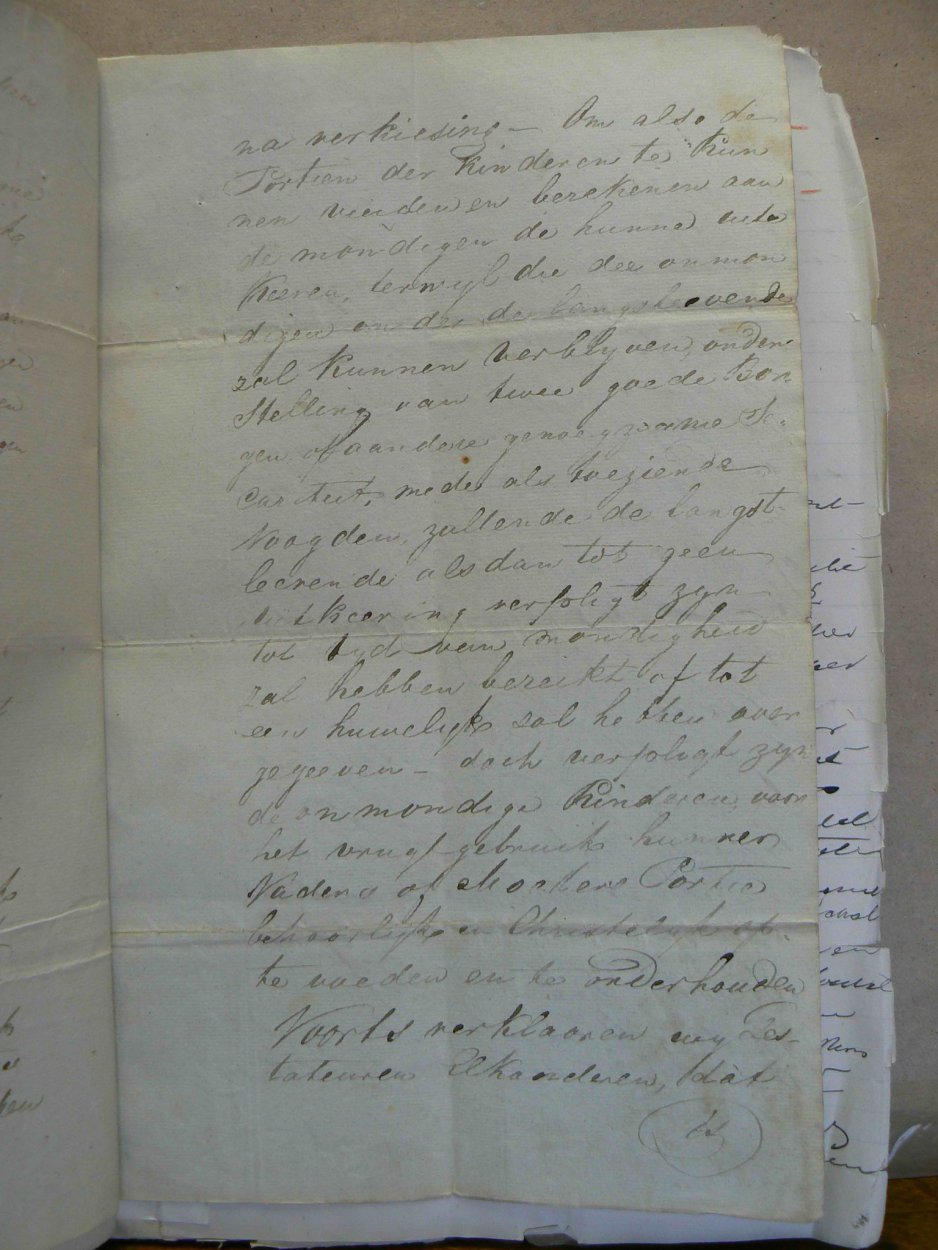 na verkiesing – Om also de
Portien der Kinderen te Kun
nen vinden en berekenen aan
de mondigen de hunne uit te
Keeren, terwyl die der onmon
digen onder de langstleevende
zal kunnen verblyven, onder
Stelling van twee goede Bor
gen of aandere genoegzaame Se-
cariteit, mede als toeziende
Voogden, zullende de langst
leevende alsdan tot geen
uitkeering verpligt zyn
tot tyd van mondigheid
zal hebben bereikt of tot
een huwelyk zal hebben over
gegeeven – doch verpligt zyn
de onmondige Kinderen, voor
het vrugt gebruik hunner
Vaders of Moeders Portie
behoorlyk en Christelyk op
te voeden en te onderhouden
Voorts verklaaren wy Tes-
tateuren Elkanderen, dat